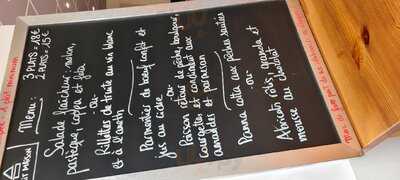 Menu:
3 PLATS = 18€
2 PLATS = 15€
Salade fraîcheur: melon,
pastèque, copha et feta
-ou-
Rillettes de truite au vin blanc
et à l'aneth
Parmentier de boeuf confit et
jus au cidre
-ou-
Poisson retour de pêche, boulgour,
courgettes et
amandes et parmesan
Panna cotta aux pêches
-ou-
Abricots rôtis, granola et
mousse au chocolat